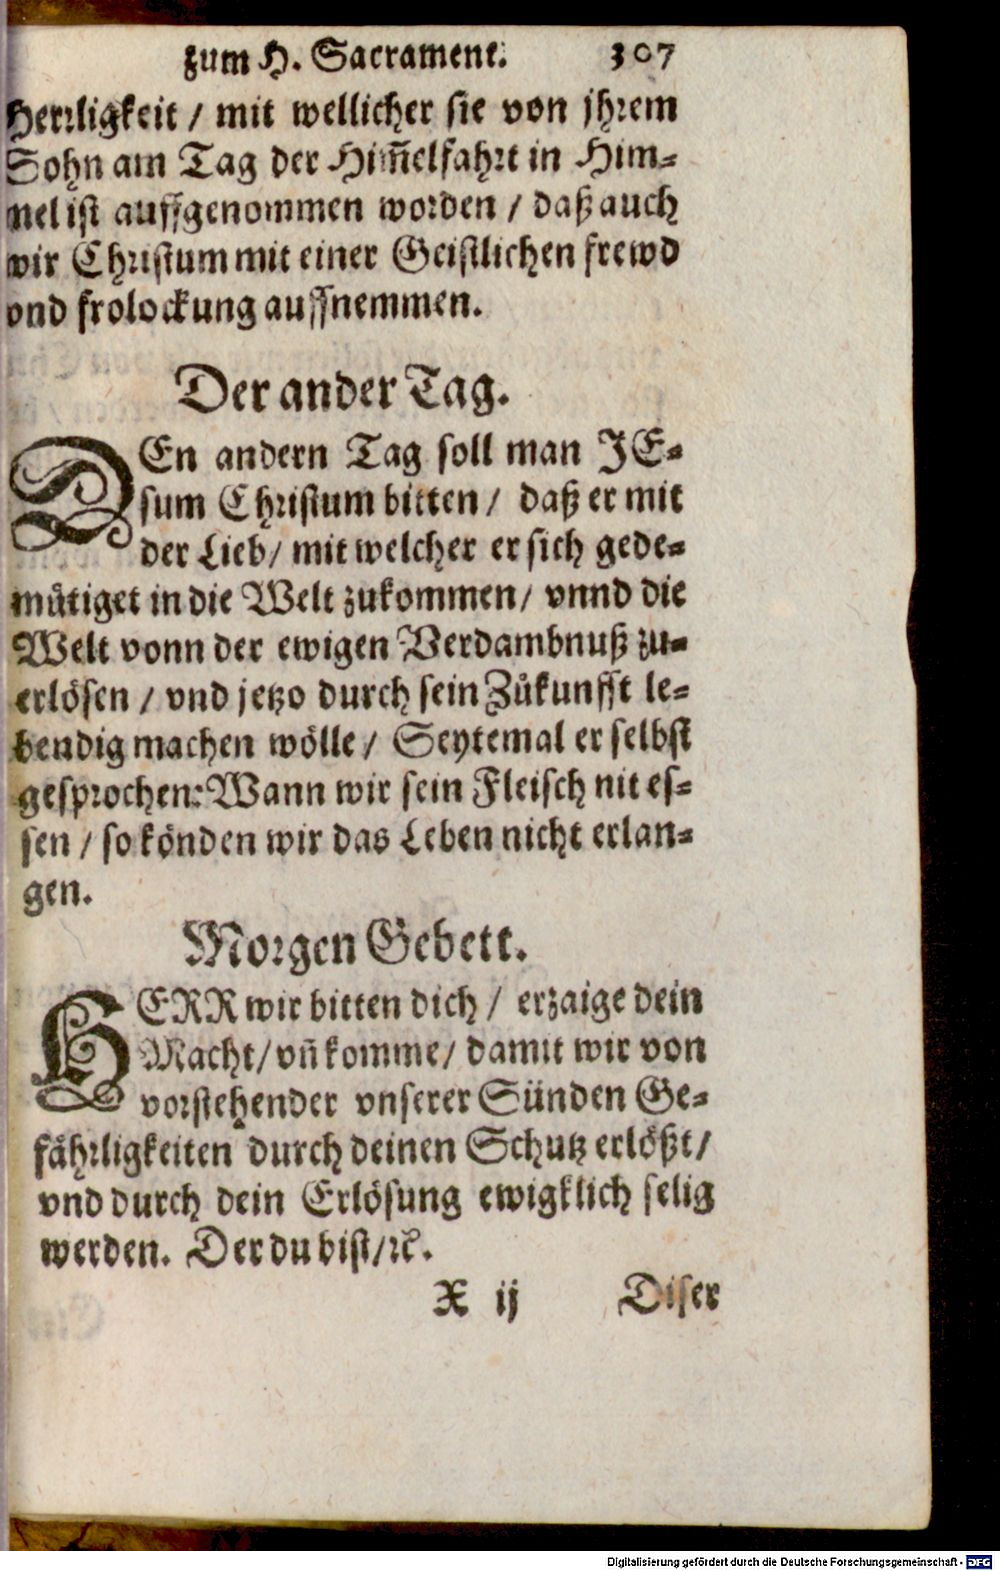 zum H. Sacrament. 307
Herrligkeit / mit wellicher sie von jhrem
Sohn am Tag der Him̃elfahrt in Him-
mel ist auffgenommen worden / daß auch
wir Christum mit einer Geistlichen frewd
vnd frolockung auffnemmen.
Der ander Tag.
DEn andern Tag soll man JE-
sum Christum bitten / daß er mit
der Lieb / mit welcher er sich gede-
mütiget in die Welt zukommen / vnnd die
Welt vonn der ewigen Verdambnuß zu-
erlösen / vnd jetzo durch sein Zůkunfft le-
bendig machen wölle / Seytemal er selbst
gesprochen: Wann wir sein Fleisch nit es-
sen / so könden wir das Leben nicht erlan-
gen.
Morgen Gebett.
HERR wir bitten dich / erzaige dein
Macht / vñ komme / damit wir von
vorstehender vnserer Sünden Ge-
fährligkeiten durch deinen Schutz erlößt /
vnd durch dein Erlösung ewigklich selig
werden. Der du bist / ꝛc.
X ij Diser
Digitalisierung gefördert durch die Deutsche Forschungsgemeinschaft - DFG